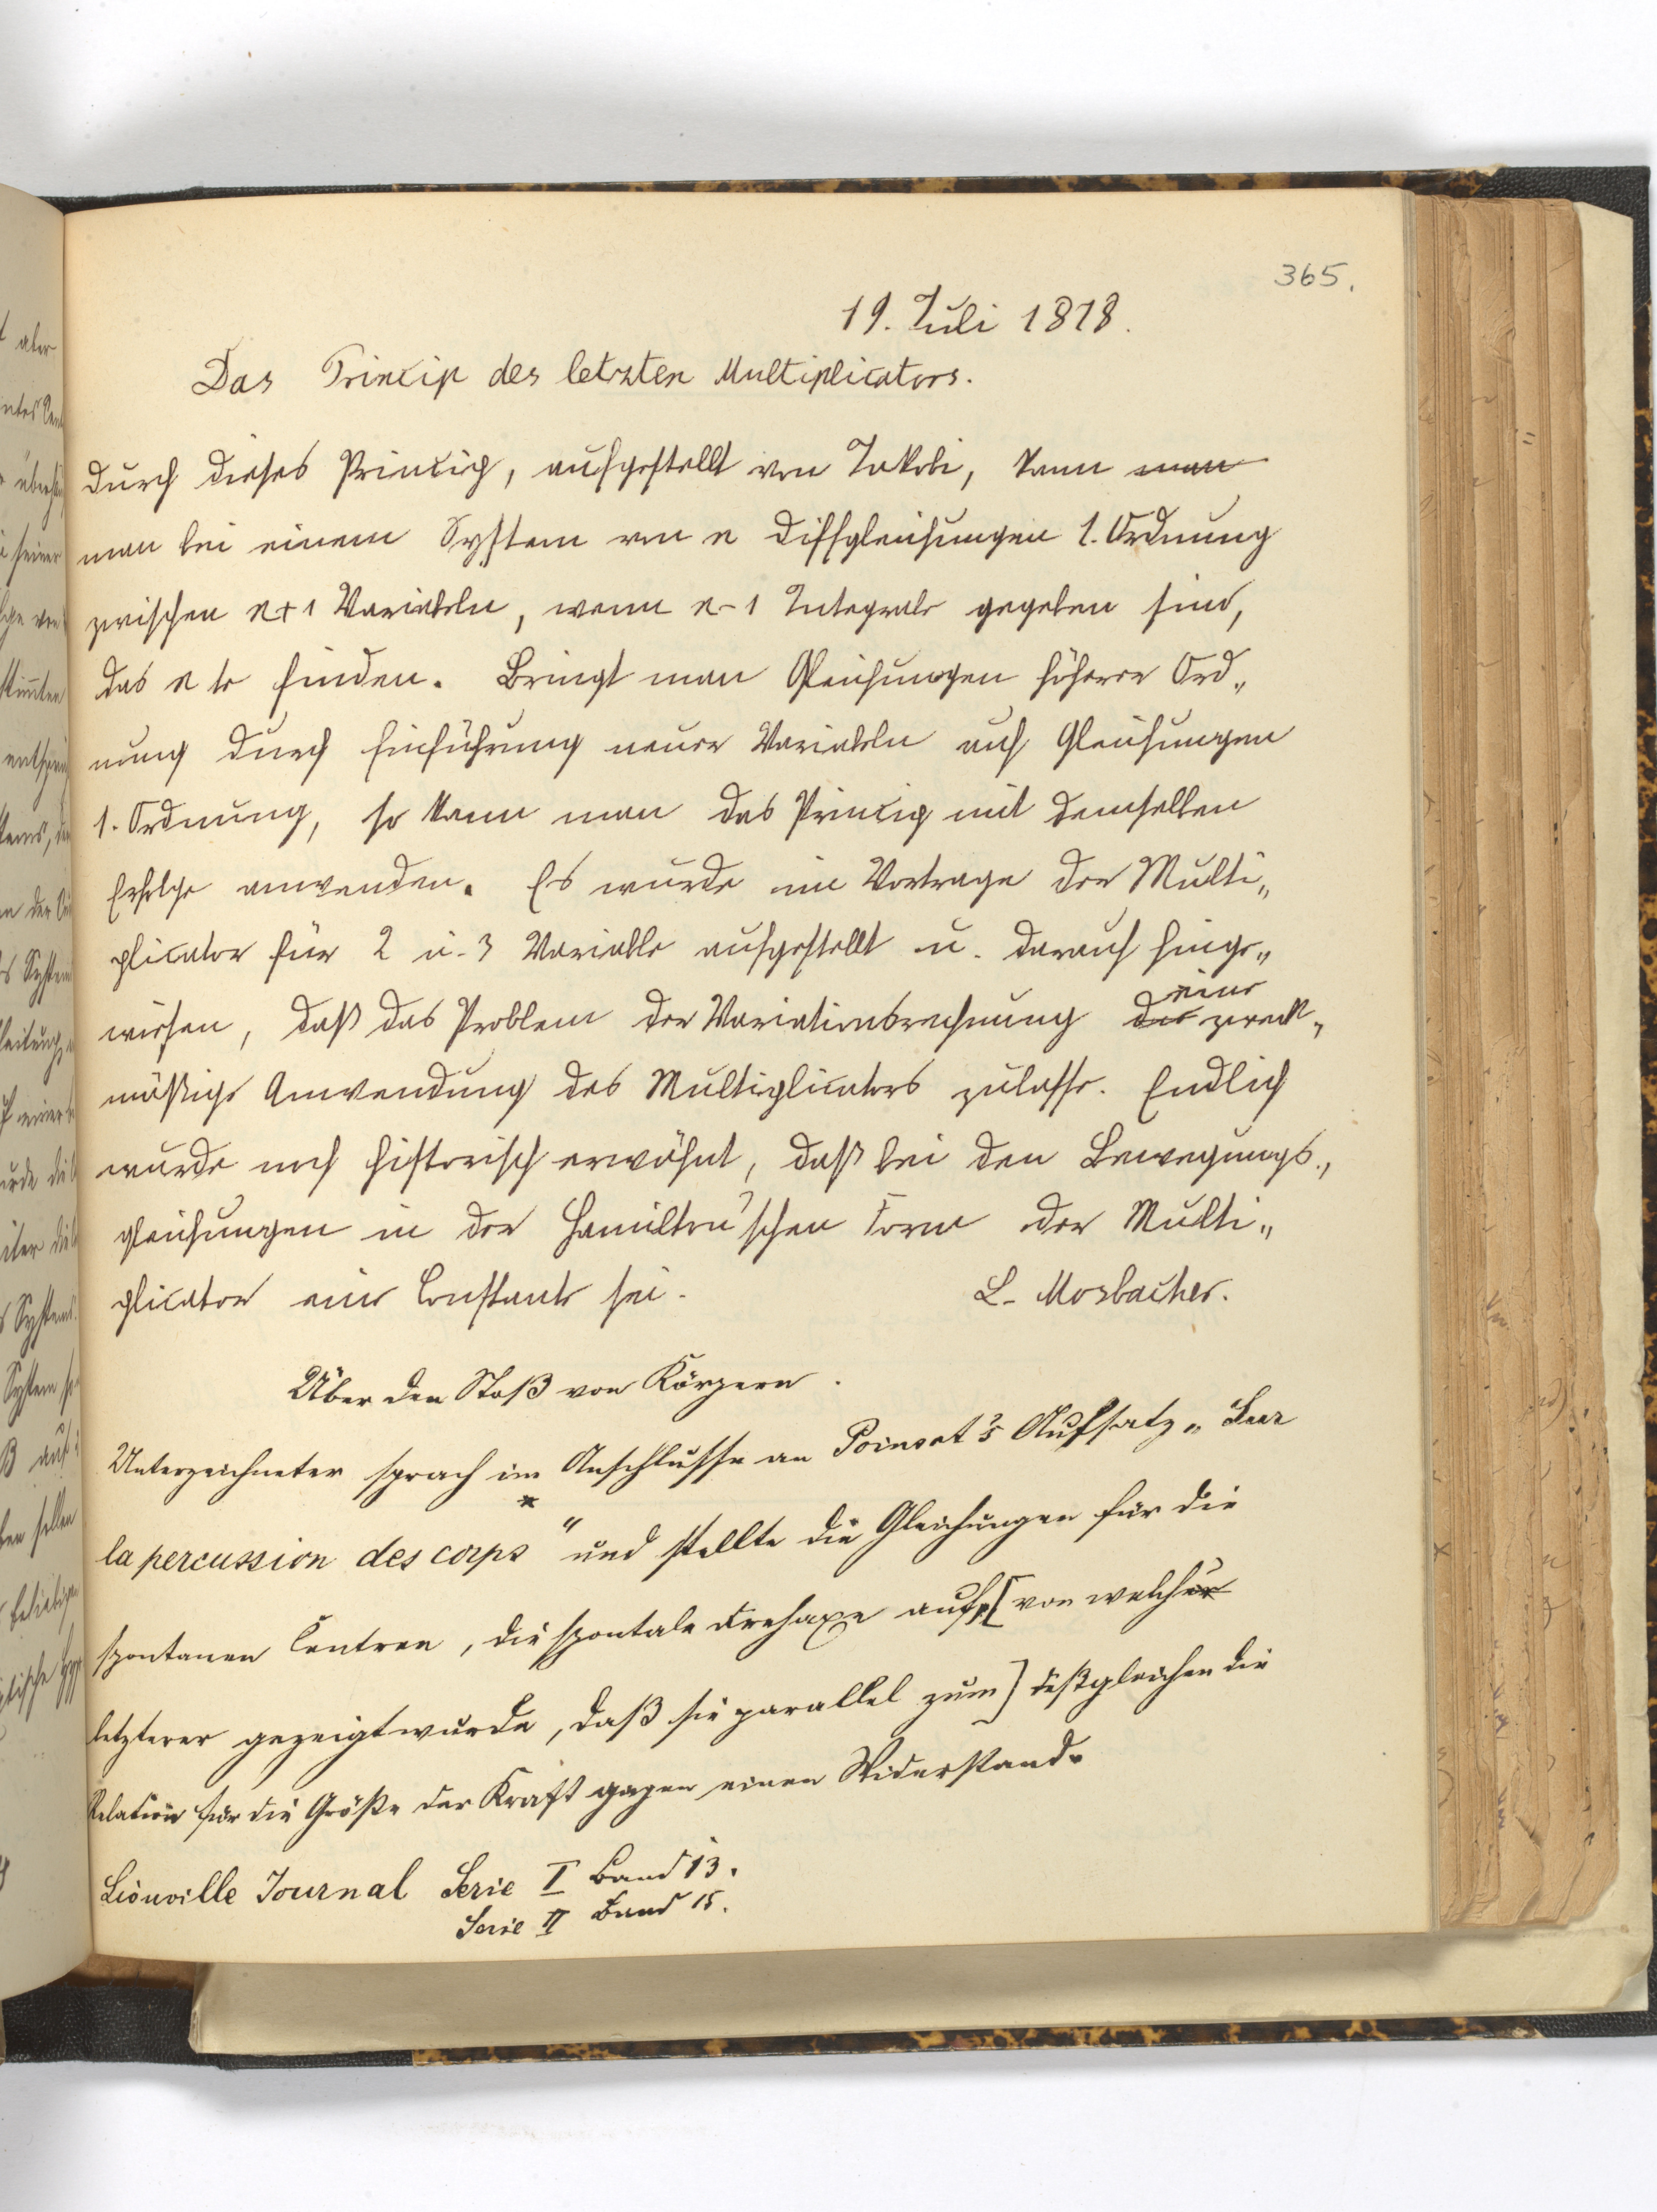 365.
19. Juli 1878.
Das Princip des letzten Multiplicators.
Durch dieses Princip, aufgestellt von Jakobi, kann man
man bei einem System von n Diffgleichungen 1. Ordnung
zwischen n+1 Variabeln, wenn n-1 Integrale gegeben sind,
das n te finden. Bringt man Gleichungen höherer Ord„
nung durch Einführung neuer Variabeln auf Gleichungen
1. Ordnung, so kann man das Princip mit demselben
Erfolge anwenden. Es wurde im Vortrage der Multi„
plicator für 2 u. 3 Variable aufgestellt u. darauf hinge„
wiesen, daß das Problem der Variationsrechnung die eine zweck„
mäßige Anwendung des Multiplicators zulasse. Endlich
wurde noch historisch erwähnt, daß bei den Bewegungs„
gleichungen in der Hamilton'schen Form der Multi„
plicator eine Constante sei. L. Mosbacher.
Über den Stoß von Körpern.
Unterzeichneter sprach im Anschlusse an Poinsot's Aufsatz „Sur
la percussion des corps * " und stellte die Gleichungen für die
spontanen Centren, die spontale Drehaxe auf, [von welcher
letzterer gezeigt wurde, daß sie parallel zum] deßgleichen die
Relation für die Größe der Kraft gegen einen Widerstand.
Liouville Journal Serie I Band 13.
Serie II Band 15.